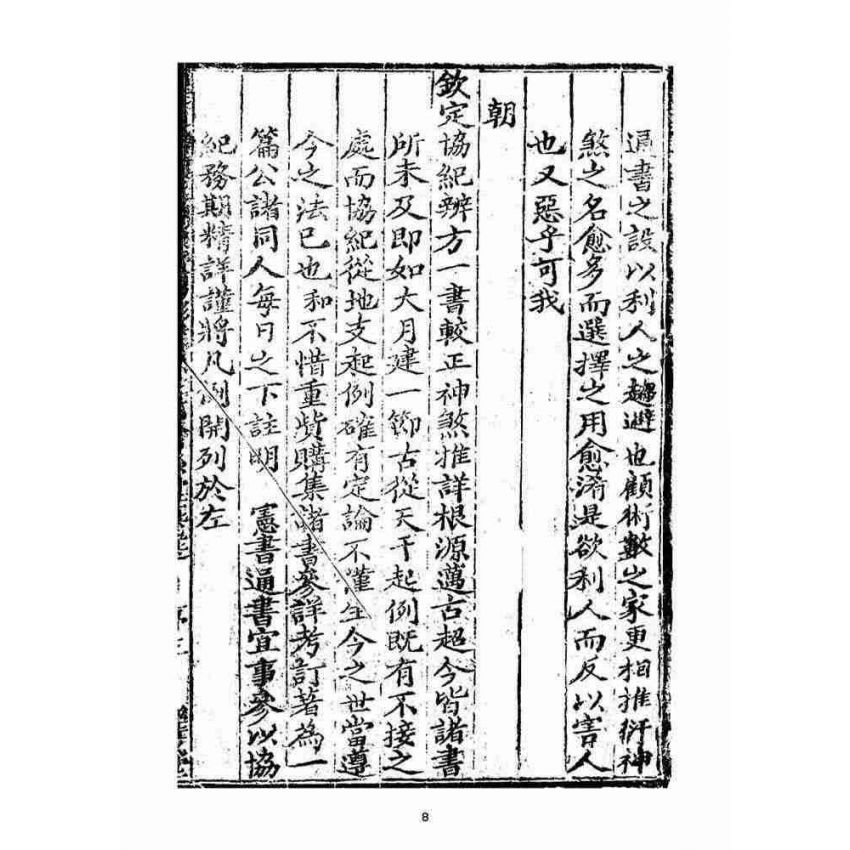 通書之設以利人之趨避也顧術數之家更相推衍神
煞之名愈多而選擇之用愈淆是欲利人而反以害人
也又惡乎可我
朝
欽定協紀辨方一書較正神煞推詳根源邁古超今皆諸書
所未及即如大月建一節古從天干起例既有不接之
處而協紀從地支起例確有定論不僅生今之世當遵
今之法已也和不惜重貲購集諸書參詳考訂著為一
篇公諸同人每日之下註明　憲書通書宜事參以協
紀務期精詳謹將凡例開列於左
8